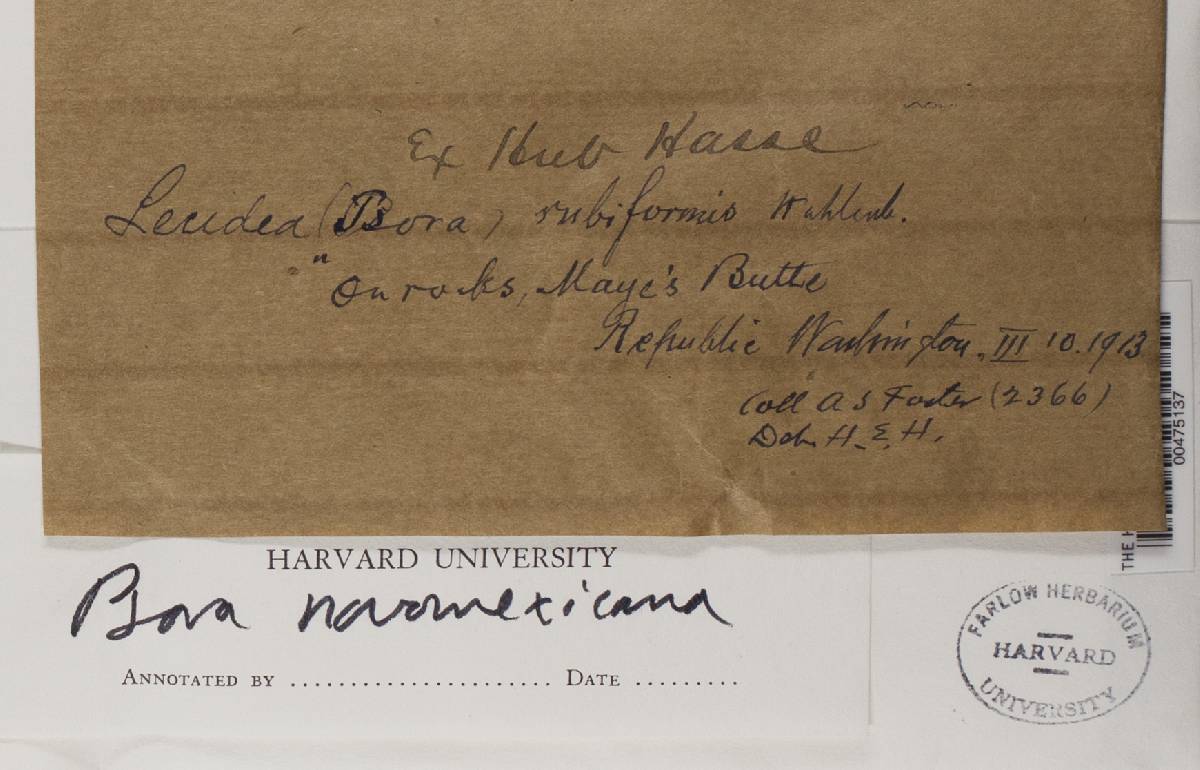 Ex Herb Hasse
Lecidea (Psora) rubiformis Wahlenb.
" On rocks, Maye's Butte
Republic Washington, III 10. 1913
Coll A S Foster (2366)
Det. H. E. H.
00475137
THE H
HARVARD UNIVERSITY
Psora novomexicana
ANNOTATED BY ...................... DATE .........
FARLOW HERBARIUM
HARVARD
UNIVERSITY